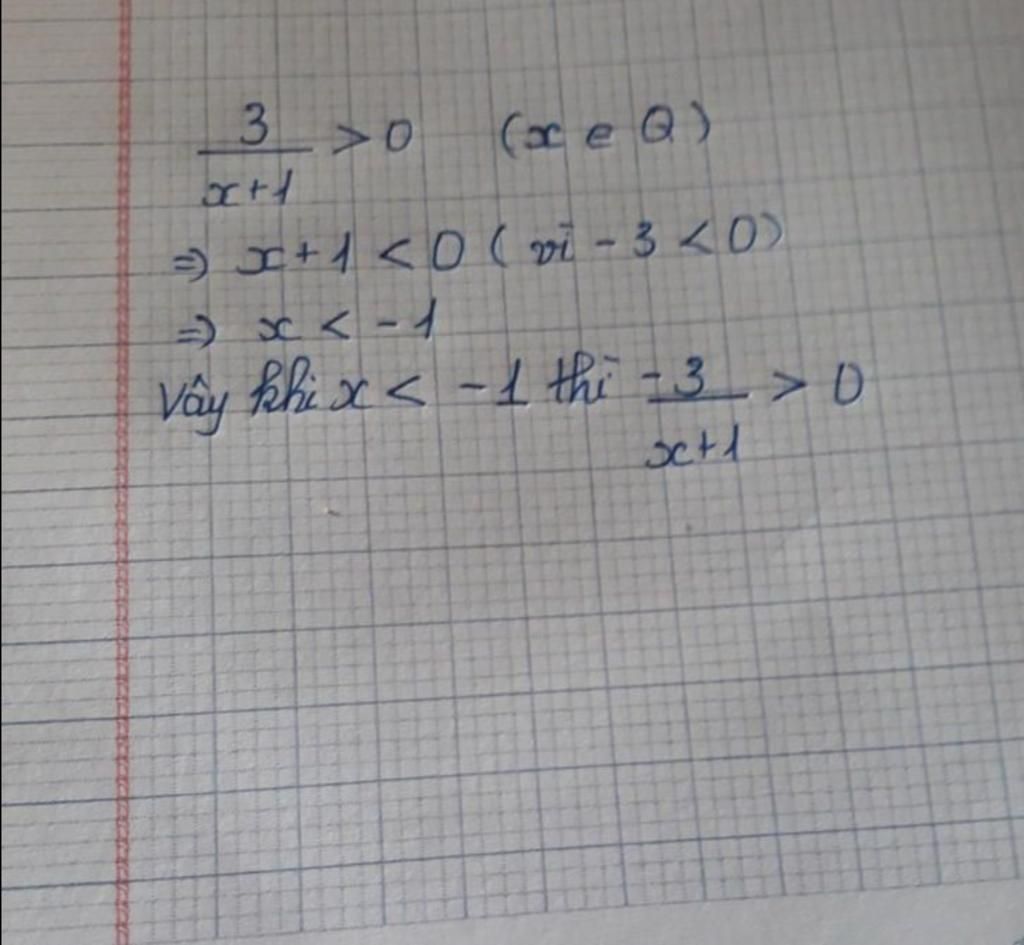 3/(x+1) > 0 (x e Q)
=) x+1 < 0 (vì -3 < 0)
=) x < -1
Vậy khi x < -1 thì -3/(x+1) > 0